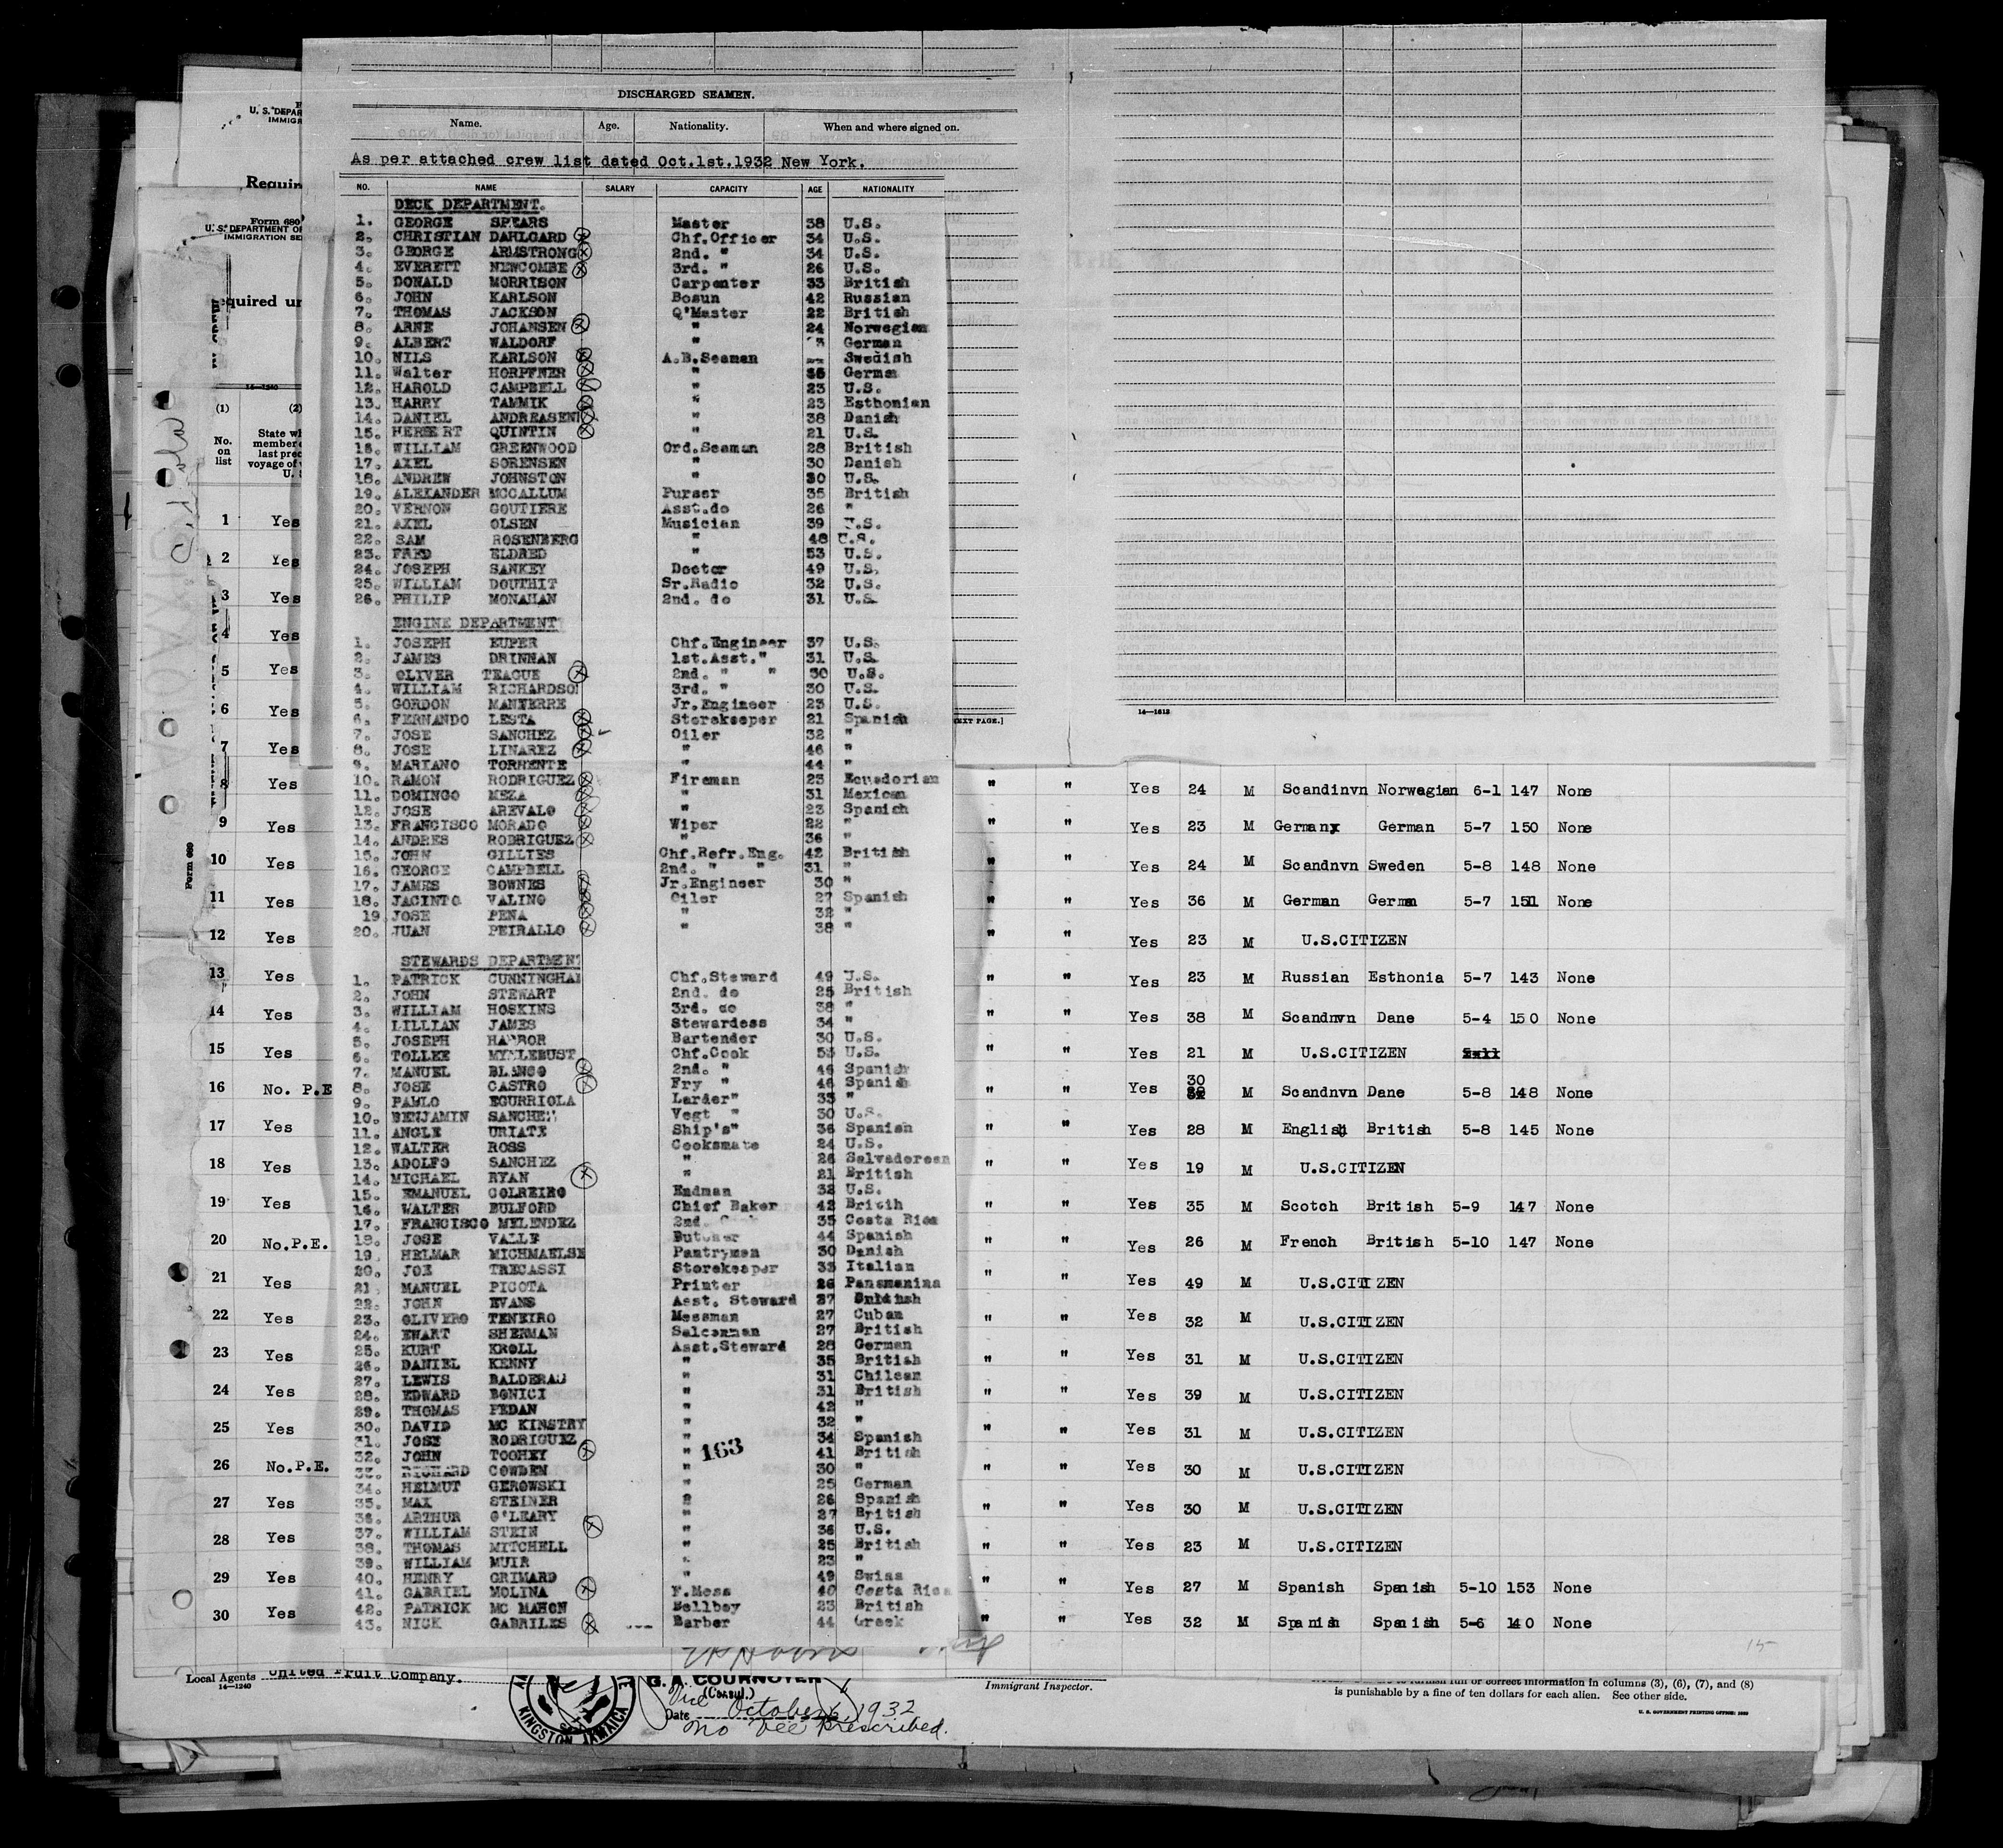 DISCHARGED SEAMEN.
Name. Age. Nationality. When and where signed on.
As per attached crew list dated Oct.1st.1932 New York.
NO. NAME SALARY CAPACITY AGE NATIONALITY
DECK DEPARTMENT.
1. GEORGE SPEARS Master 38 U.S.
2. CHRISTIAN DAHLGARD Chf.Officer 34 U.S.
3. GEORGE ARMSTRONG 2nd. " 34 U.S.
4. EVERETT NEWCOMBE 3rd. " 26 U.S.
5. DONALD MORRISON Carpenter 33 British
6. JOHN KARLSON Bosun 42 Russian
7. THOMAS JACKSON Q'Master 22 British
8. ARNE JOHANSEN " 24 Norwegian
9. ALBERT WALDORF " German
10. NILS KARLSON A.B.Seaman Swedish
11. Walter HORPFNER " 36 German
12. HAROLD CAMPBELL " 23 U.S.
13. HARRY TAMMIK " 23 Esthonian
14. DANIEL ANDREASEN " 38 Danish
15. HERBERT QUINTIN " 21 U.S.
16. WILLIAM GREENWOOD Ord.Seaman 28 British
17. AXEL SORENSEN " 30 Danish
18. ANDREW JOHNSTON " 30 U.S.
19. ALEXANDER MCCALLUM Purser 35 British
20. VERNON GOUTIERE Asst.do 26 "
21. AXEL OLSEN Musician 39 U.S.
22. SAM ROSENBERG " 48 U.S.
23. FRED ELDRED " 53 U.S.
24. JOSEPH SANKEY Doctor 49 U.S.
25. WILLIAM DOUTHIT Sr.Radio 32 U.S.
26. PHILIP MONAHAN 2nd. do 31 U.S.
ENGINE DEPARTMENT
1. JOSEPH EUPER Chf.Engineer 37 U.S.
2. JAMES DRINNAN 1st.Asst." 31 U.S.
3. OLIVER TEAGUE 2nd. " " 30 U.S.
4. WILLIAM RICHARDSON 3rd. " 30 U.S.
5. GORDON MANNERRE Jr.Engineer 23 U.S.
6. FERNANDO LESTA Storekeeper 21 Spanish
7. JOSE SANCHEZ Oiler 32 "
8. JOSE LINAREZ " 46 "
9. MARIANO TORRENTE " 44 "
10. RAMON RODRIGUEZ Fireman 23 Ecuadorian
11. DOMINGO MEZA " 31 Mexican
12. JOSE AREVALO " 23 Spanish
13. FRANCISCO MORADO Wiper 22 "
14. ANDRES RODRIGUEZ " 36 "
15. JOHN GILLIES Chf.Refr.Eng. 42 British
16. GEORGE CAMPBELL 2nd. " " 31 "
17. JAMES BOWNES Jr.Engineer 30 "
18. JACINTO VALINO Oiler 27 Spanish
19 JOSE PENA " 32 "
20. JUAN PEIRALLO " 38 "
STEWARDS DEPARTMENT
1. PATRICK CUNNINGHAM Chf.Steward 49 U.S.
2. JOHN STEWART 2nd. do 25 British
3. WILLIAM HOSKINS 3rd. do 38 "
4. LILLIAN JAMES Stewardess 34 "
5. JOSEPH HARBOR Bartender 30 U.S.
6. TOLLEE MYKLEBUST Chf.Cook 53 U.S.
7. MANUEL BLANCO 2nd. " 46 Spanish
8. JOSE CASTRO Fry " 46 Spanish
9. PABLO EGURRIOLA Larder" 33 "
10. BENJAMIN SANCHEZ Vegt " 30 U.S.
11. ANGLE URIATE Ship's" 36 Spanish
12. WALTER ROSS Cooksmate 24 U.S.
13. ADOLFO SANCHEZ " 26 Salvadorean
14. MICHAEL RYAN " 21 British
15. EMANUEL COLREIRO Endman 32 U.S.
16. WALTER BULFORD Chief Baker 42 Britih
17. FRANCISCO MELENDEZ 2nd. 35 Costa Rica
18. JOSE VALLE Butcher 44 Spanish
19. HELMAR MICHMAELSE Pantryman 30 Danish
20. JOE TRECASSI Storekeeper 33 Italian
21. MANUEL PICOTA Printer 26 Panamanina
22. JOHN EVANS Asst. Steward 37
23. OLIVERO TENEIRO Messman 27 Cuban
24. EWART SHERMAN Saloonman 27 British
25. KURT KROLL Asst.Steward 28 German
26. DANIEL KENNY " 35 British
27. LEWIS BALDERAU " 31 Chilean
28. EDWARD BONICI " 31 British
29. THOMAS FEDAN " 42 "
30. DAVID MC KINSTRY " 32 "
31. JOSE RODRIGUEZ " 34 Spanish
32. JOHN TOOHEY " 41 British
33. RICHARD COWDEN " 30 "
34. HELMUT GEROWSKI " 25 German
35. MAX STEINER " 26 Spanish
36. ARTHUR O'LEARY " 27 British
37. WILLIAM STEIN " 36 U.S.
38. THOMAS MITCHELL " 25 British
39. WILLIAM MUIR " 23 "
40. HENRY GRIMARD " 49 Swiss
41. GABRIEL MOLINA F.Mess 40 Costa Rica
42. PATRICK MC MAHON Bellboy 23 British
43. NICK GABRILES Barber 44 Greek
163
14—1613
U. S. DEPAR
IMMIGR
Requir
Form 680
U. S. DEPARTMENT OF
IMMIGRATION SE
equired ur
14—1240
(1) (2)
No. on list
State wh
member
last prec
voyage of
U. S
Form 689
1 Yes
2 Yes
3 Yes
4 Yes
5 Yes
6 Yes
7 Yes
8 Yes " " Yes 24 M Scandinvn Norwegian 6-1 147 None
9 Yes " " Yes 23 M Germanx German 5-7 150 None
10 Yes " " Yes 24 M Scandnvn Sweden 5-8 148 None
11 Yes " " Yes 36 M German German 5-7 151 None
12 Yes " " Yes 23 M U.S.CITIZEN
13 Yes " " Yes 23 M Russian Esthonia 5-7 143 None
14 Yes " " Yes 38 M Scandnvn Dane 5-4 150 None
15 Yes " " Yes 21 M U.S.CITIZEN
16 No. P.E " " Yes 30 M Scandnvn Dane 5-8 148 None
17 Yes " " Yes 28 M English British 5-8 145 None
18 Yes " " Yes 19 M U.S.CITIZEN
19 Yes " " Yes 35 M Scotch British 5-9 147 None
20 No.P.E. " " Yes 26 M French British 5-10 147 None
21 Yes " " Yes 49 M U.S.CITIZEN
22 Yes " " Yes 32 M U.S.CITIZEN
23 Yes " " Yes 31 M U.S.CITIZEN
24 Yes " " Yes 39 M U.S.CITIZEN
25 Yes " " Yes 31 M U.S.CITIZEN
26 No.P.E. " " Yes 30 M U.S.CITIZEN
27 Yes " " Yes 30 M U.S.CITIZEN
28 Yes " " Yes 23 M U.S.CITIZEN
29 Yes " " Yes 27 M Spanish Spanish 5-10 153 None
30 Yes " " Yes 32 M Spanish Spanish 5-6 140 None
15
EXT PAGE.]
Local Agents United Fruit Company.
14—1240
G. A. COURNOYER
Vice (Consul.)
Date October 1932
No Fee Prescribed.
KINGSTON JAMAICA
Immigrant Inspector.
correct information in columns (3), (6), (7), and (8)
is punishable by a fine of ten dollars for each alien. See other side.
U. S. GOVERNMENT PRINTING OFFICE: